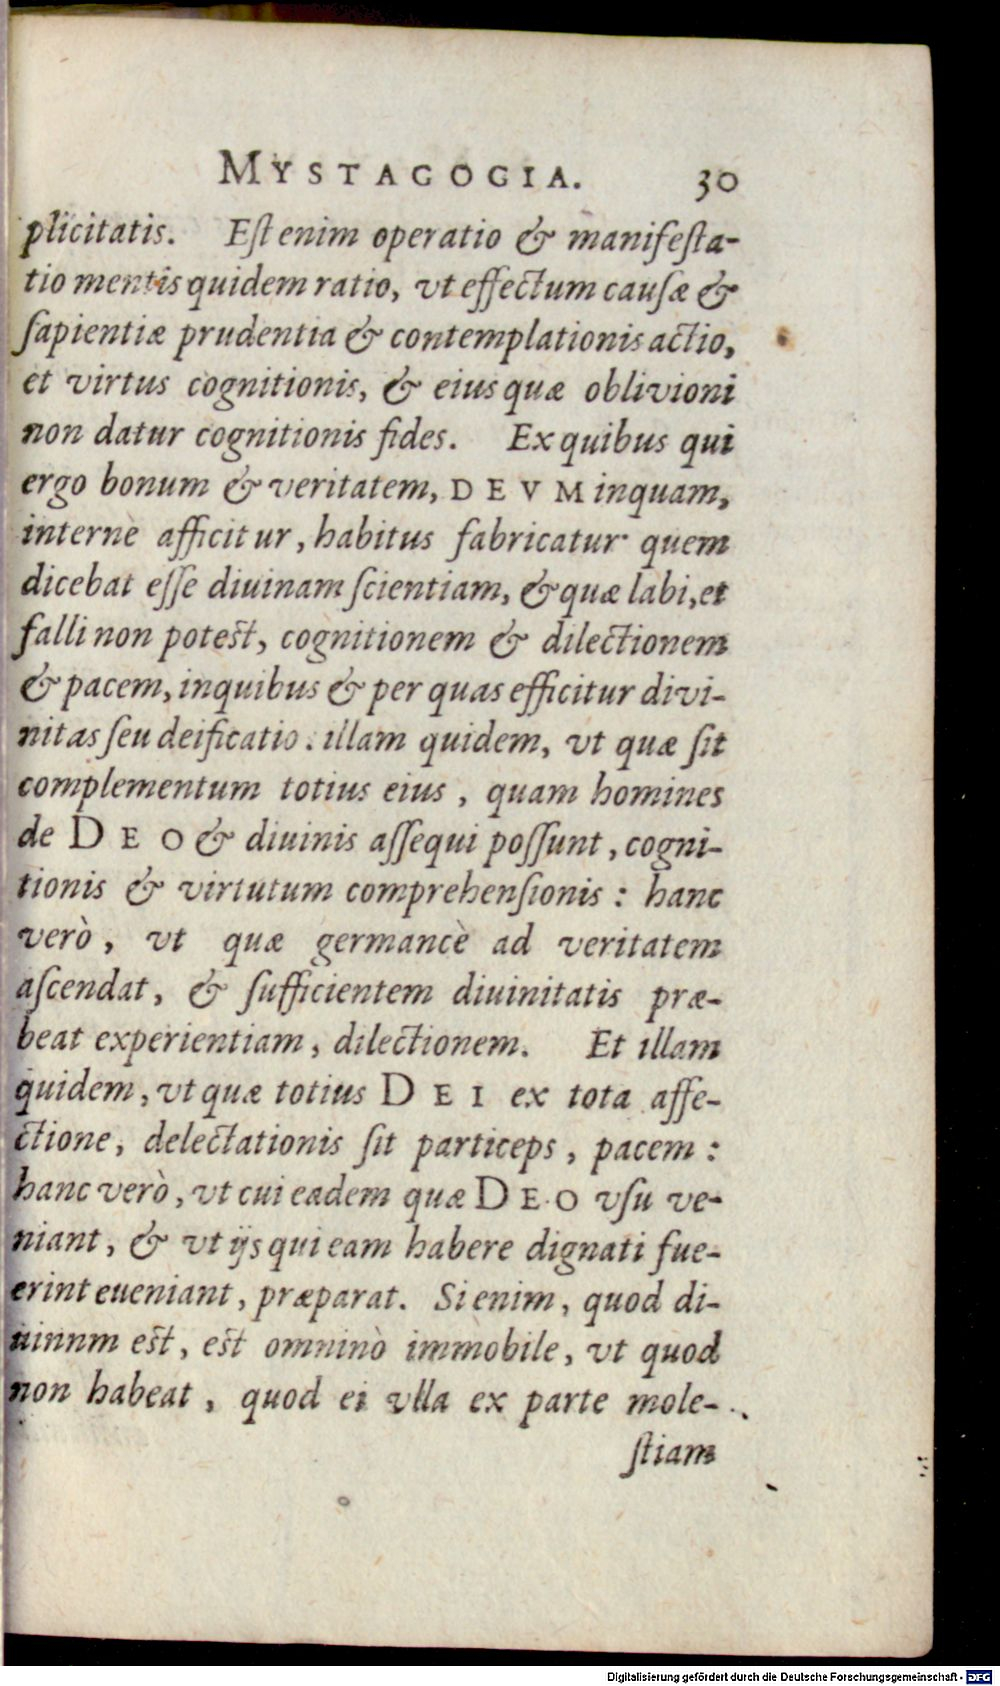 MYSTAGOGIA. 30
plicitatis. Eſt enim operatio & manifeſta-
tio mentis quidem ratio, vt effectum cauſæ &
ſapientiæ prudentia & contemplationis actio,
et virtus cognitionis, & eius quæ oblivioni
non datur cognitionis fides. Ex quibus qui
ergo bonum & veritatem, DEVM inquam,
internè afficitur, habitus fabricatur quem
dicebat eſſe diuinam ſcientiam, & quæ labi, et
falli non poteſt, cognitionem & dilectionem
& pacem, inquibus & per quas efficitur divi-
nitas ſeu deificatio. illam quidem, vt quæ ſit
complementum totius eius, quam homines
de DEO & diuinis aſſequi poſſunt, cogni-
tionis & virtutum comprehenſionis: hanc
verò, vt quæ germancè ad veritatem
aſcendat, & ſufficientem diuinitatis præ-
beat experientiam, dilectionem. Et illam
quidem, vt quæ totius DEI ex tota affe-
ctione, delectationis ſit particeps, pacem:
hanc verò, vt cui eadem quæ DEO vſu ve-
niant, & vt ijs qui eam habere dignati fue-
erint eueniant, præparat. Si enim, quod di-
uinnm eſt, eſt omninò immobile, vt quod
non habeat, quod ei vlla ex parte mole-
ſtiam
Digitalisierung gefördert durch die Deutsche Forschungsgemeinschaft - DFG